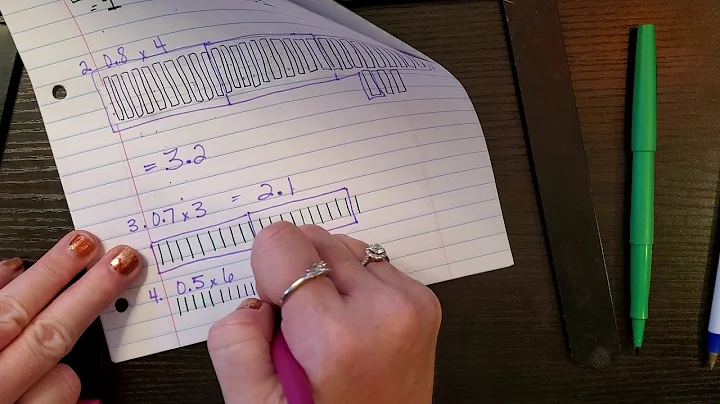 2. 0.8 x 4
= 3.2
3. 0.7 x 3 = 2.1
4. 0.5 x 6